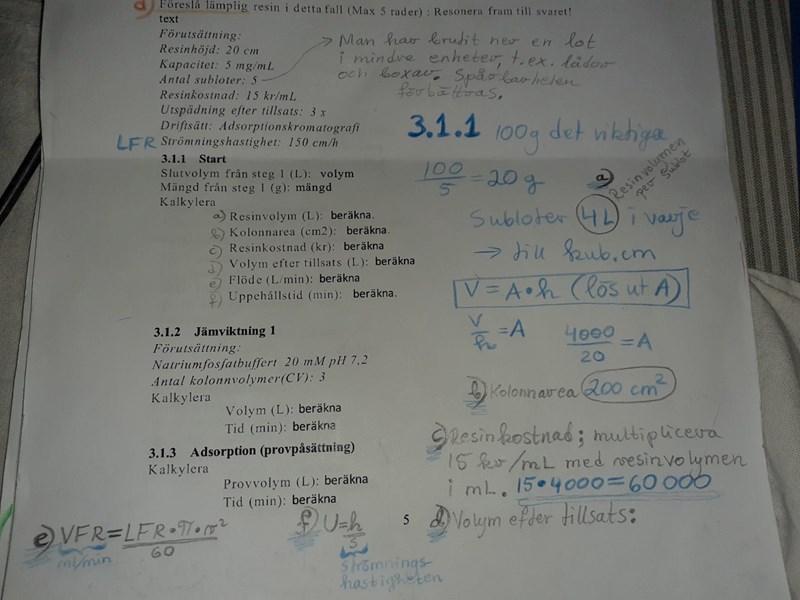 a) Föreslå lämplig resin i detta fall (Max 5 rader) : Resonera fram till svaret!
text
Förutsättning:
Resinhöjd: 20 cm
Kapacitet: 5 mg/mL
Antal subloter: 5
Resinkostnad: 15 kr/mL
Utspädning efter tillsats: 3 x
Driftsätt: Adsorptionskromatografi
LFR Strömningshastighet: 150 cm/h
Man har brutit ner en lot
i mindre enheter, t.ex. lådor
och boxar. Spårbarheten
förbättras.
3.1.1 Start
Slutvolym från steg 1 (L): volym
Mängd från steg 1 (g): mängd
Kalkylera
a) Resinvolym (L): beräkna.
b) Kolonnarea (cm2): beräkna.
c) Resinkostnad (kr): beräkna
d) Volym efter tillsats (L): beräkna
e) Flöde (L/min): beräkna
f) Uppehållstid (min): beräkna.
3.1.2 Jämviktning 1
Förutsättning:
Natriumfosfatbuffert 20 mM pH 7,2
Antal kolonnvolymer(CV): 3
Kalkylera
Volym (L): beräkna
Tid (min): beräkna
3.1.3 Adsorption (provpåsättning)
Kalkylera
Provvolym (L): beräkna
Tid (min): beräkna
3.1.1 100g det viktiga
100/5 = 20 g
a) Resinvolymen
per sublot
Subloter 4L i varje
→ till kub.cm
V = A•h (lös ut A)
V/h = A 4000/20 = A
b) Kolonnarea 200 cm²
c) Resinkostnad; multiplicera
15 kr/mL med resinvolymen
i mL. 15•4000=60000
d) Volym efter tillsats:
e) VFR = LFR•π•r²/60
ml/min
f) U = h/S
strömnings-
hastigheten
5